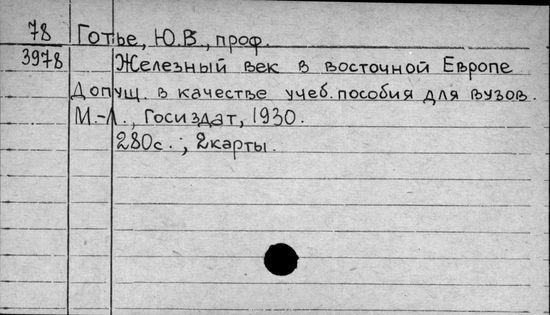 78 Готье, Ю.В., проф.
3978 Железный век в восточной Европе
Допущ. в качестве учеб. пособия для вузов.
М.-Л., Госиздат, 1930.
280с.; 2карты.